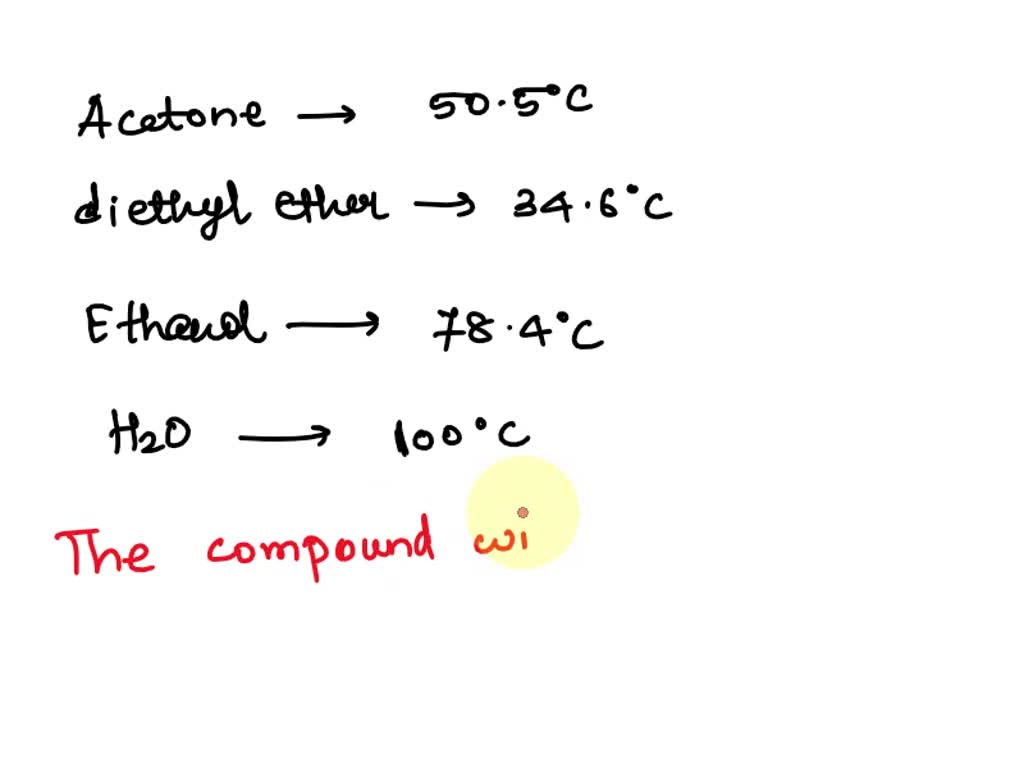 Acetone → 50.5°C
diethyl ether → 34.6°C
Ethanol → 78.4°C
H2O → 100°C
The compound wi